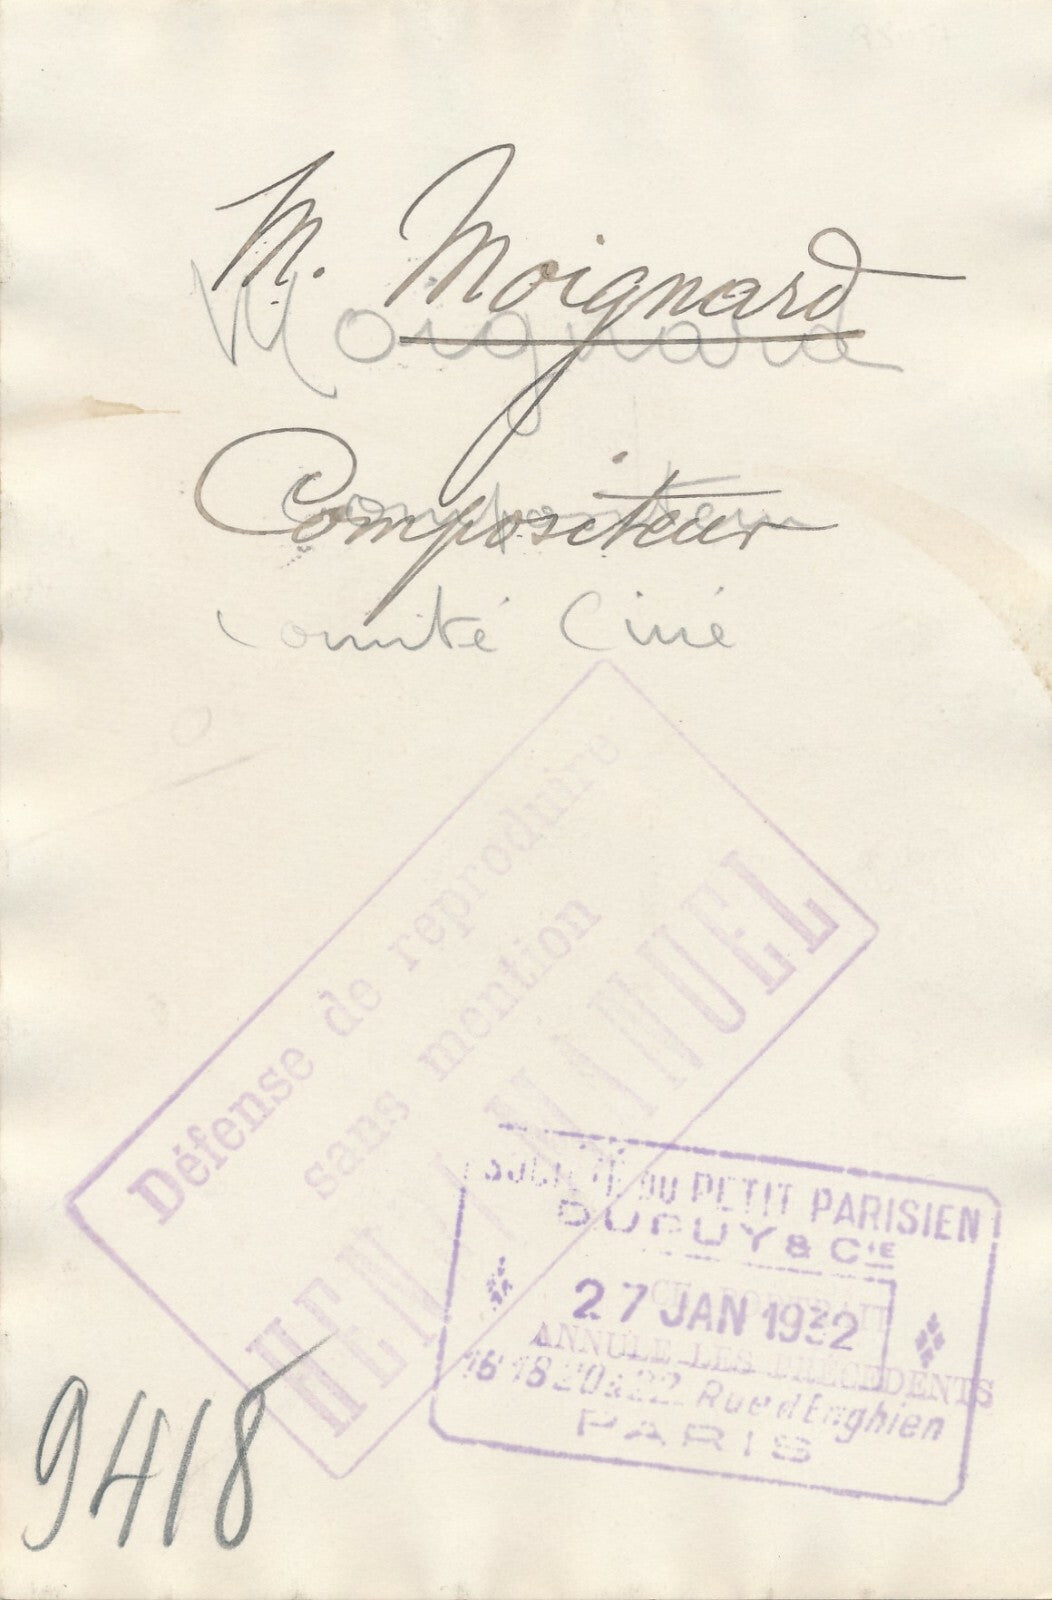 M. Moignard
Moignard
Compositeur
Compositeur
Comité Ciné
Défense de reproduire
sans mention
HENRI MANUEL
SOCIÉTÉ DU PETIT PARISIEN
DUPUY & CIE
27 JAN 1932
CE PORTRAIT
ANNULE LES PRÉCÉDENTS
16 18 20 & 22 Rue d'Enghien
PARIS
9418